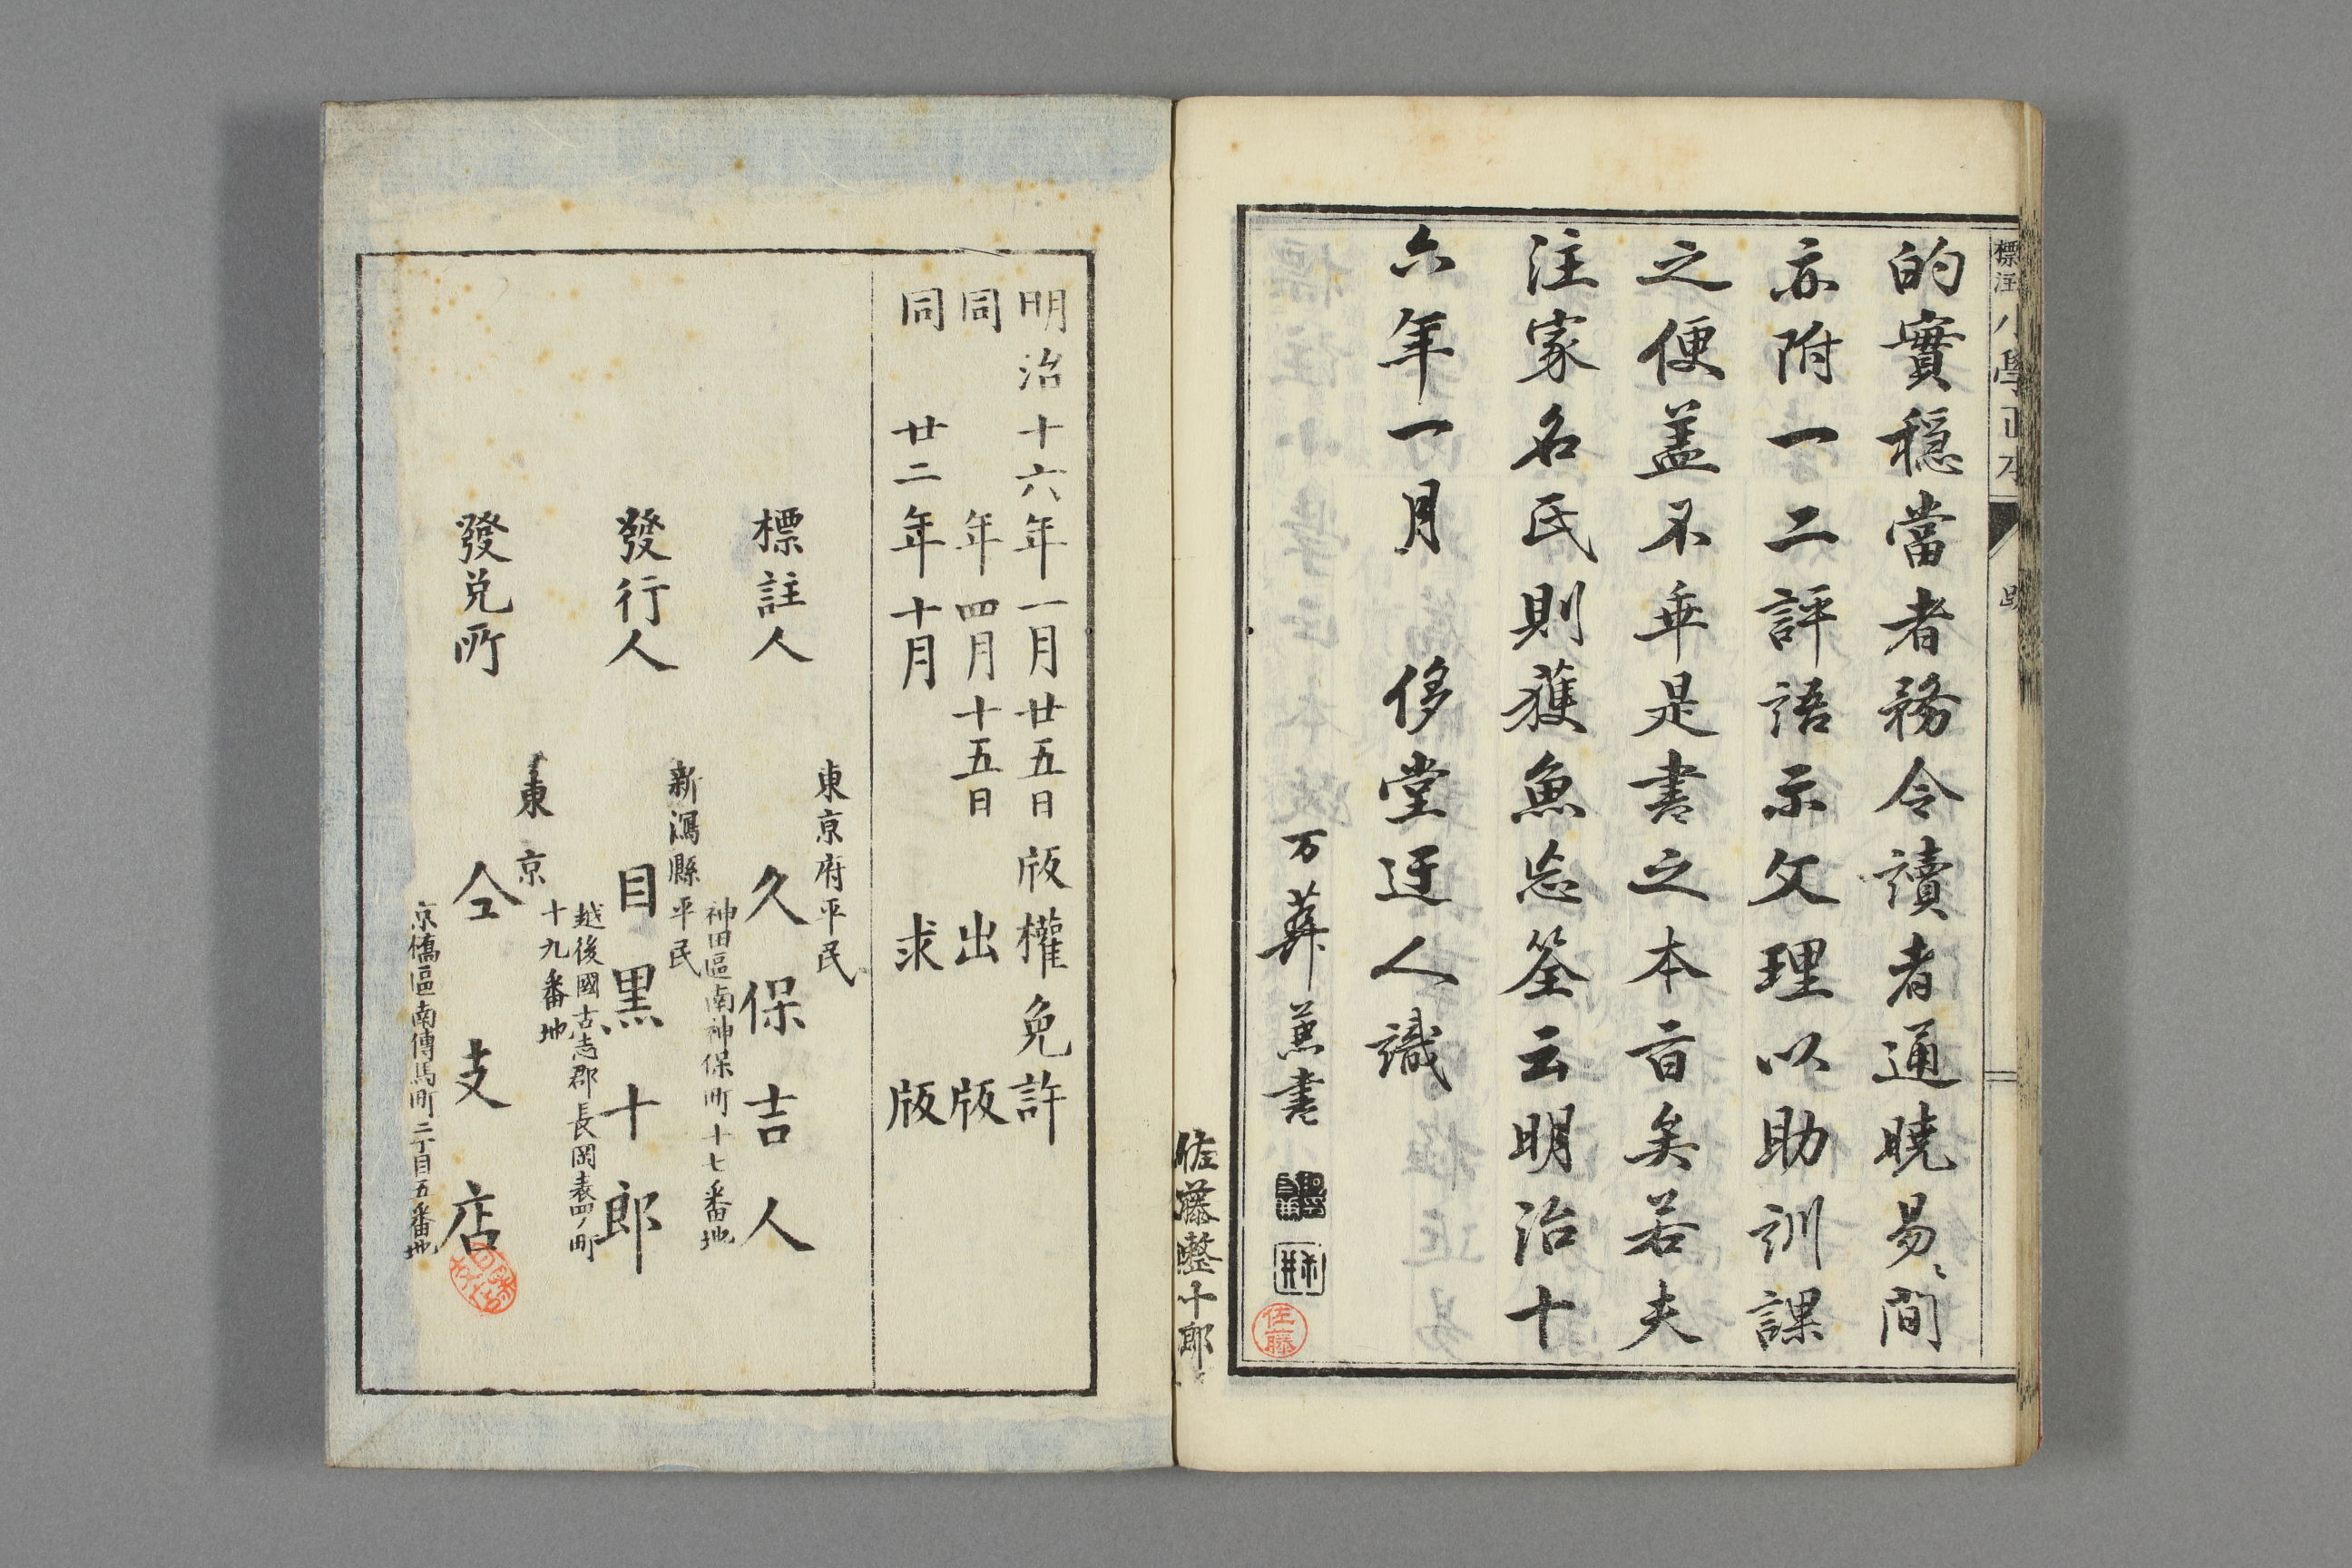 標注
小學正本
的實穩當者務令讀者通曉易〻間
亦附一二評語示文理以助訓課
之便盖不乖是書之本旨矣若夫
注家名氏則獲魚忘筌云明治十
六年一月　侈堂迂人識
書
佐藤
佐藤鏧十郎
明治十六年一月廿五日版權免許
同　年四月十五日出版
同　廿二年十月求版
標註人
東京府平民
久保吉人
神田區南神保町十七番地
發行人
新潟縣平民
目黒十郎
越後國古志郡長岡表四ノ町
十九番地
發兌所
東京
仝支店
京橋區南傳馬町二丁目五番地